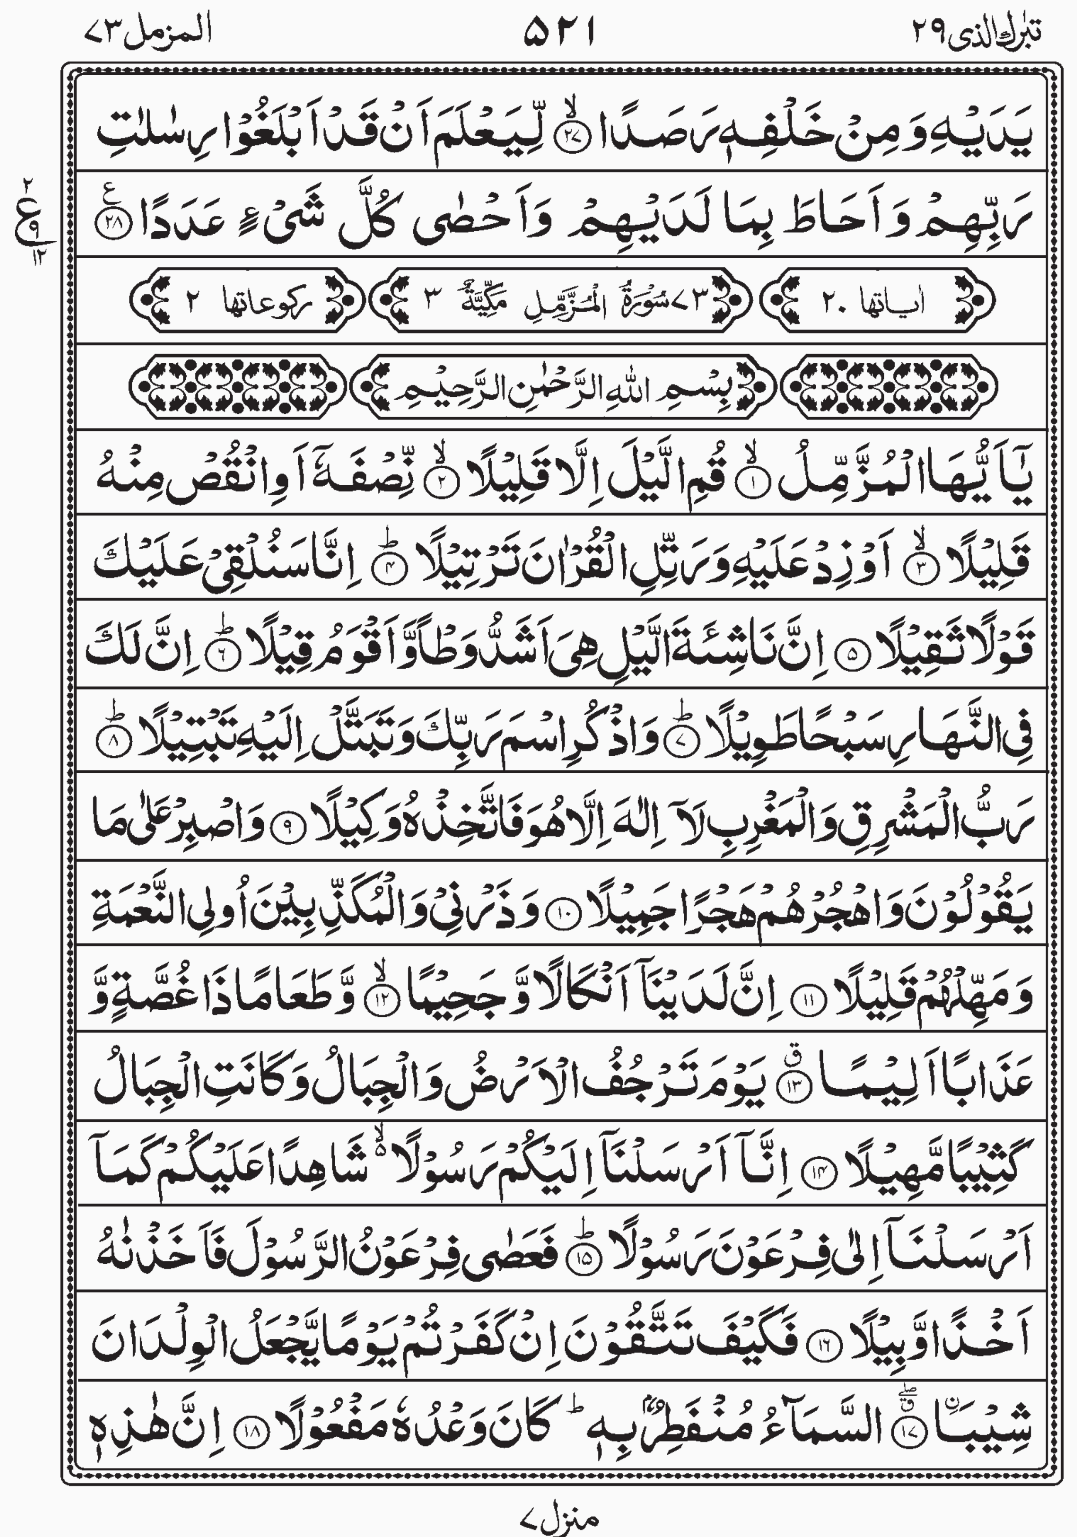 تبٰرك الذی ۲۹
۵۲۱
المزمل ۷۳
يَدَيْهِ وَمِنْ خَلْفِهٖ رَصَدًا ۙ‏﴿۲۷﴾ لِّيَعْلَمَ اَنْ قَدْ اَبْلَغُوْا رِسٰلٰتِ
رَبِّهِمْ وَ اَحَاطَ بِمَا لَدَيْهِمْ وَ اَحْصٰى كُلَّ شَىْءٍ عَدَدًا ﴿۲۸﴾ ع
۲ ع ۹ ۱۲
اٰیاتها ۲۰ ۷۳ سُوْرَةُ الْمُزَّمِّلِ مَكِّيَّةٌ ۳ ركوعاتها ۲
بِسْمِ اللّٰهِ الرَّحْمٰنِ الرَّحِيْمِ
يٰۤاَيُّهَا الْمُزَّمِّلُ ۙ‏﴿۱﴾ قُمِ الَّيْلَ اِلَّا قَلِيْلًا ۙ‏﴿۲﴾ نِّصْفَهٗۤ اَوِ انْقُصْ مِنْهُ
قَلِيْلًا ۙ‏﴿۳﴾ اَوْ زِدْ عَلَيْهِ وَ رَتِّلِ الْقُرْاٰنَ تَرْتِيْلًا ؕ‏﴿۴﴾ اِنَّا سَنُلْقِىْ عَلَيْكَ
قَوْلًا ثَقِيْلًا ﴿۵﴾ اِنَّ نَاشِئَةَ الَّيْلِ هِىَ اَشَدُّ وَطْاً وَّ اَقْوَمُ قِيْلًا ؕ‏﴿۶﴾ اِنَّ لَكَ
فِى النَّهَارِ سَبْحًا طَوِيْلًا ؕ‏﴿۷﴾ وَ اذْكُرِ اسْمَ رَبِّكَ وَ تَبَتَّلْ اِلَيْهِ تَبْتِيْلًا ؕ‏﴿۸﴾
رَبُّ الْمَشْرِقِ وَ الْمَغْرِبِ لَاۤ اِلٰهَ اِلَّا هُوَ فَاتَّخِذْهُ وَكِيْلًا ﴿۹﴾ وَ اصْبِرْ عَلٰى مَا
يَقُوْلُوْنَ وَ اهْجُرْهُمْ هَجْرًا جَمِيْلًا ﴿۱۰﴾ وَ ذَرْنِىْ وَ الْمُكَذِّبِيْنَ اُولِى النَّعْمَةِ
وَ مَهِّلْهُمْ قَلِيْلًا ﴿۱۱﴾ اِنَّ لَدَيْنَاۤ اَنْكَالًا وَّ جَحِيْمًا ۙ‏﴿۱۲﴾ وَّ طَعَامًا ذَا غُصَّةٍ وَّ
عَذَابًا اَلِيْمًا ق ﴿۱۳﴾ يَوْمَ تَرْجُفُ الْاَرْضُ وَ الْجِبَالُ وَ كَانَتِ الْجِبَالُ
كَثِيْبًا مَّهِيْلًا ﴿۱۴﴾ اِنَّاۤ اَرْسَلْنَاۤ اِلَيْكُمْ رَسُوْلًا ۙ۬ شَاهِدًا عَلَيْكُمْ كَمَاۤ
اَرْسَلْنَاۤ اِلٰى فِرْعَوْنَ رَسُوْلًا ؕ‏﴿۱۵﴾ فَعَصٰى فِرْعَوْنُ الرَّسُوْلَ فَاَخَذْنٰهُ
اَخْذًا وَّبِيْلًا ﴿۱۶﴾ فَكَيْفَ تَتَّقُوْنَ اِنْ كَفَرْتُمْ يَوْمًا يَّجْعَلُ الْوِلْدَانَ
شِيْبَا ۨ ۖق ﴿۱۷﴾ السَّمَآءُ مُنْفَطِرٌۢ بِهٖ ؕ كَانَ وَعْدُهٗ مَفْعُوْلًا ﴿۱۸﴾ اِنَّ هٰذِهٖ
منزل ۷